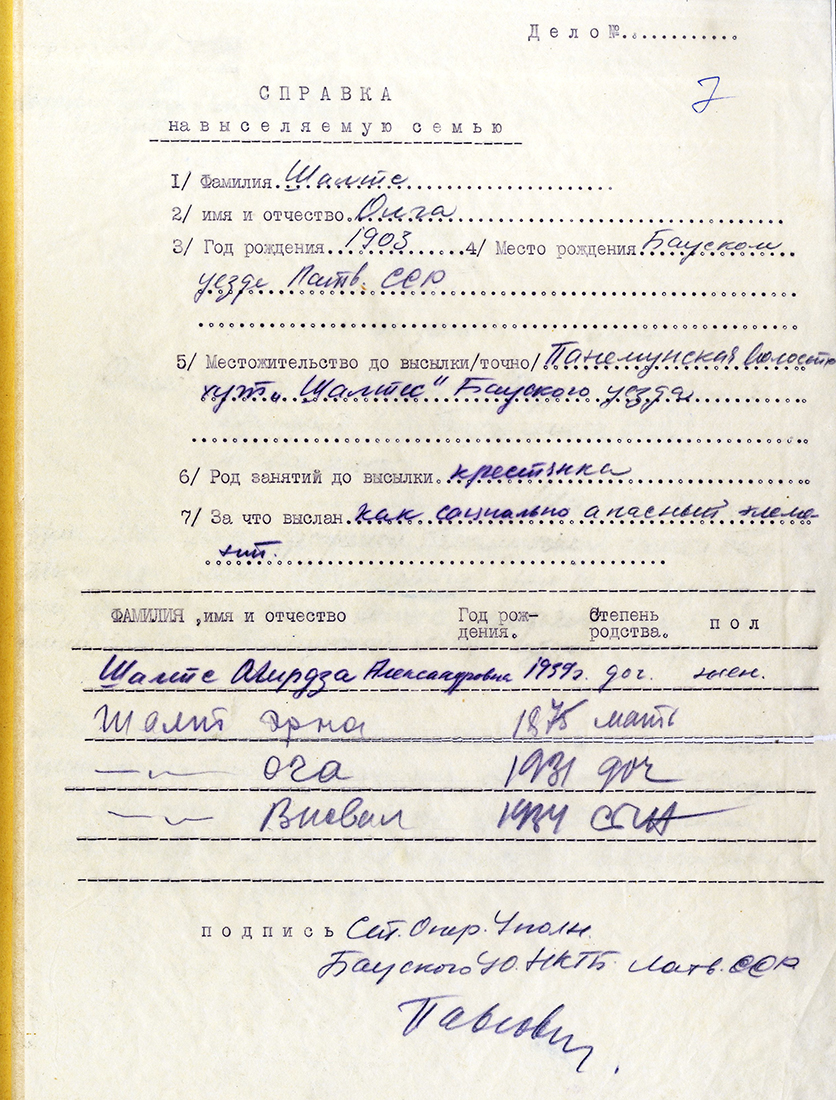 Дело №............
7
СПРАВКА
на выселяемую семью
1/ Фамилия Шалтс
2/ имя и отчество Олга
3/ Год рождения 1903 4/ Место рождения Бауском
уезде Латв. ССР
5/ Местожительство до высылки/точно/ Панемунская волость
хут. „Шалтс" Бауского уезда
6/ Род занятий до высылки крестянка
7/ За что выслан как социально апасный элеме-
нт.
ФАМИЛИЯ, имя и отчество Год рож- Степень пол
дения. родства.
Шалтс Дзирдза Александровна 1939г. доч. жен.
Шалт Эрна 1875 мать
—„— 1931 доч
—„— 1934 сын
подпись Ст. Опер. Уполн.
Бауского УО. НКГБ Латв. ССР